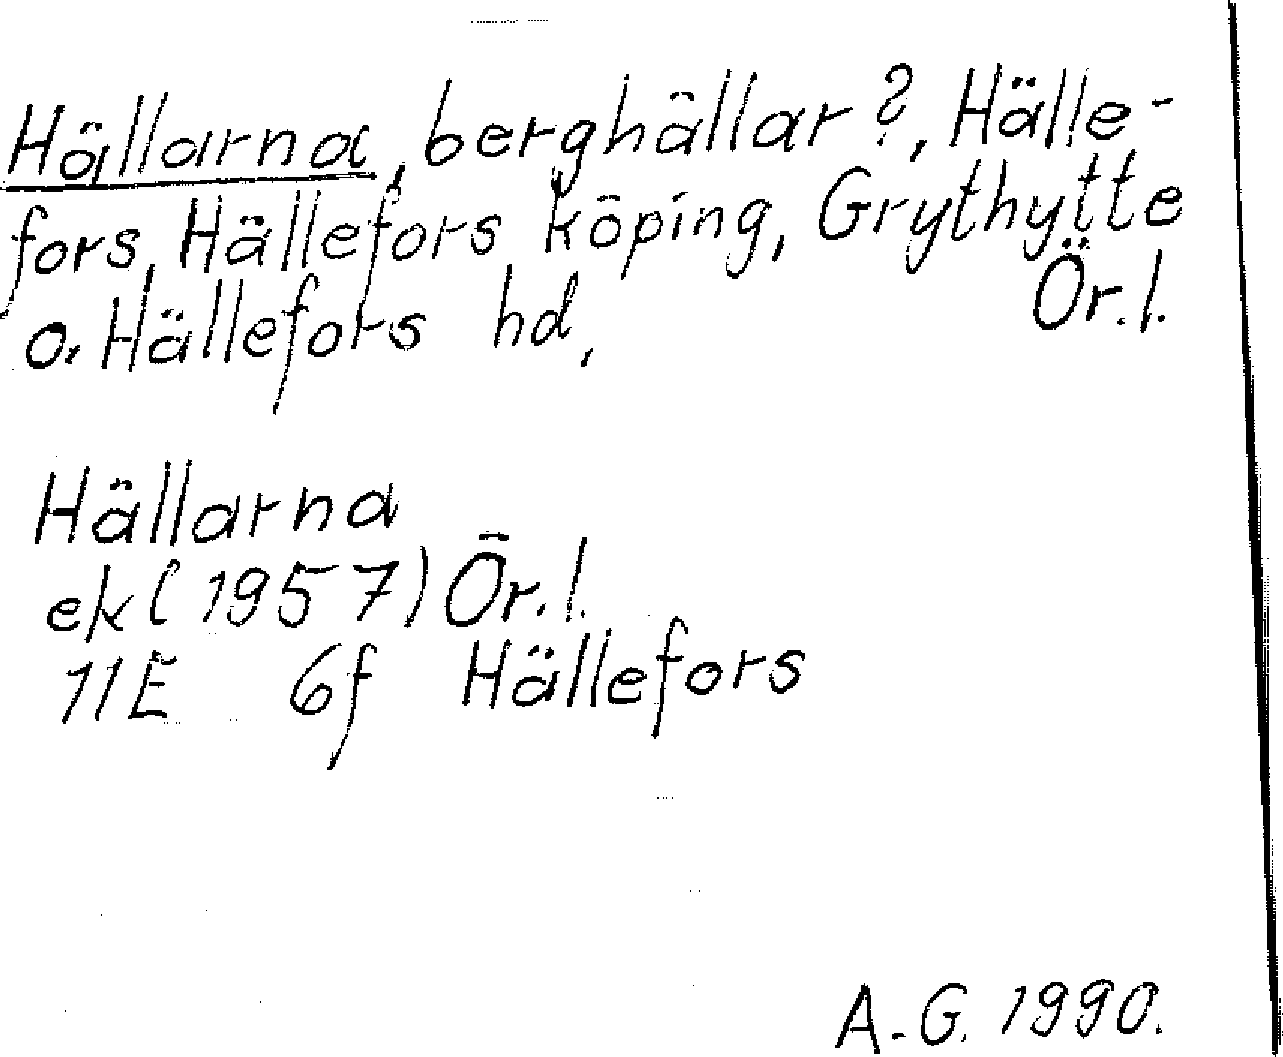 Hällarna, berghällar?, Hälle-
fors, Hällefors köping, Grythytte
o. Hällefors hd, Ör.l.
Hällarna
ek (1957) Ör.l.
11E 6f Hällefors
A.-G. 1990.